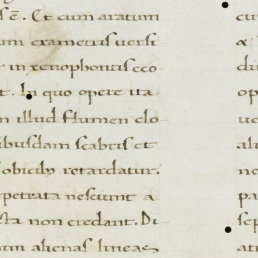 s ē. Et cum aratum
um exametris uersi
in xenophontis eco
t. In quo opere ita
n illud flumen elo
ibusdam scabris et
obicibus retardatur.
petrata nesciunt a
sta non credant. Di
um alienas lineas
cu
di
op
ue
al
ne
pa
sep
ati